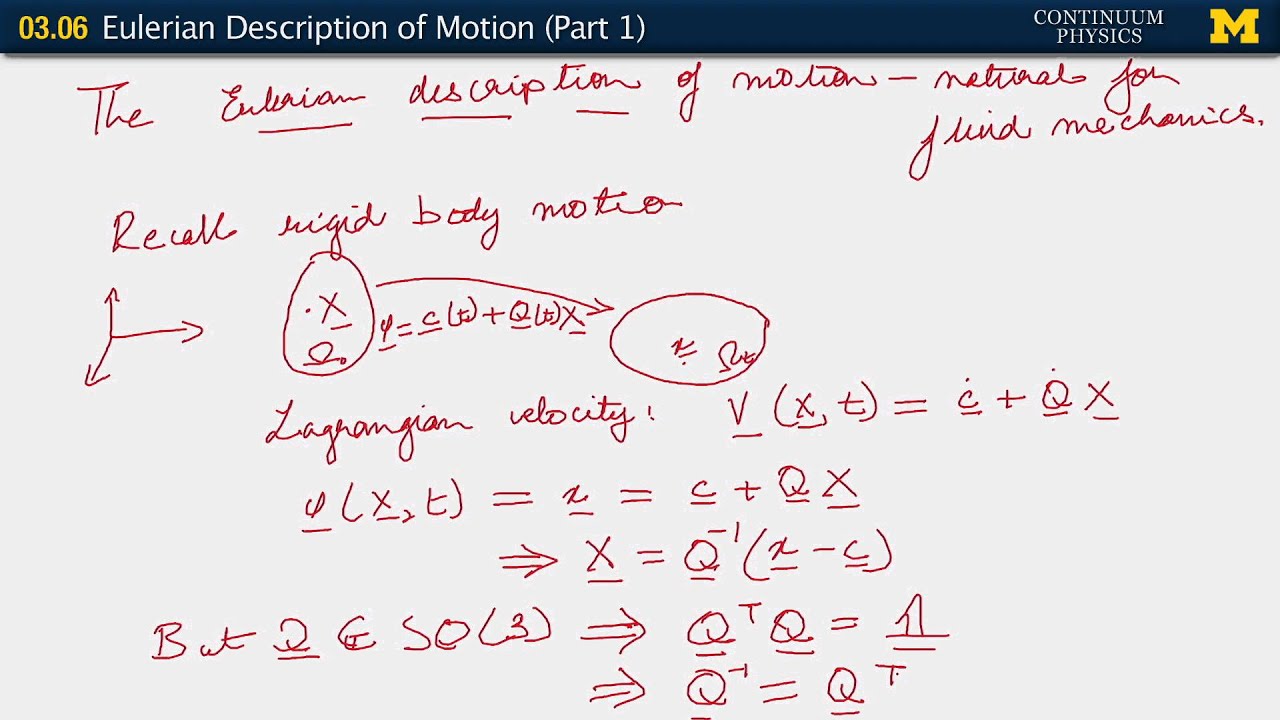 03.06 Eulerian Description of Motion (Part 1)
CONTINUUM
PHYSICS
M
The Eulerian description of motion – natural for
fluid mechanics.
Recall rigid body motion
·X
Ω₀
φ = c(t) + Q(t)X
x Ωt
Lagrangian velocity: V(X, t) = ċ + Q̇ X
φ(X, t) = x = c + Q X
⇒ X = Q⁻¹(x − c)
But Q ∈ SO(3) ⇒ QᵀQ = 𝟙
⇒ Q⁻¹ = Qᵀ